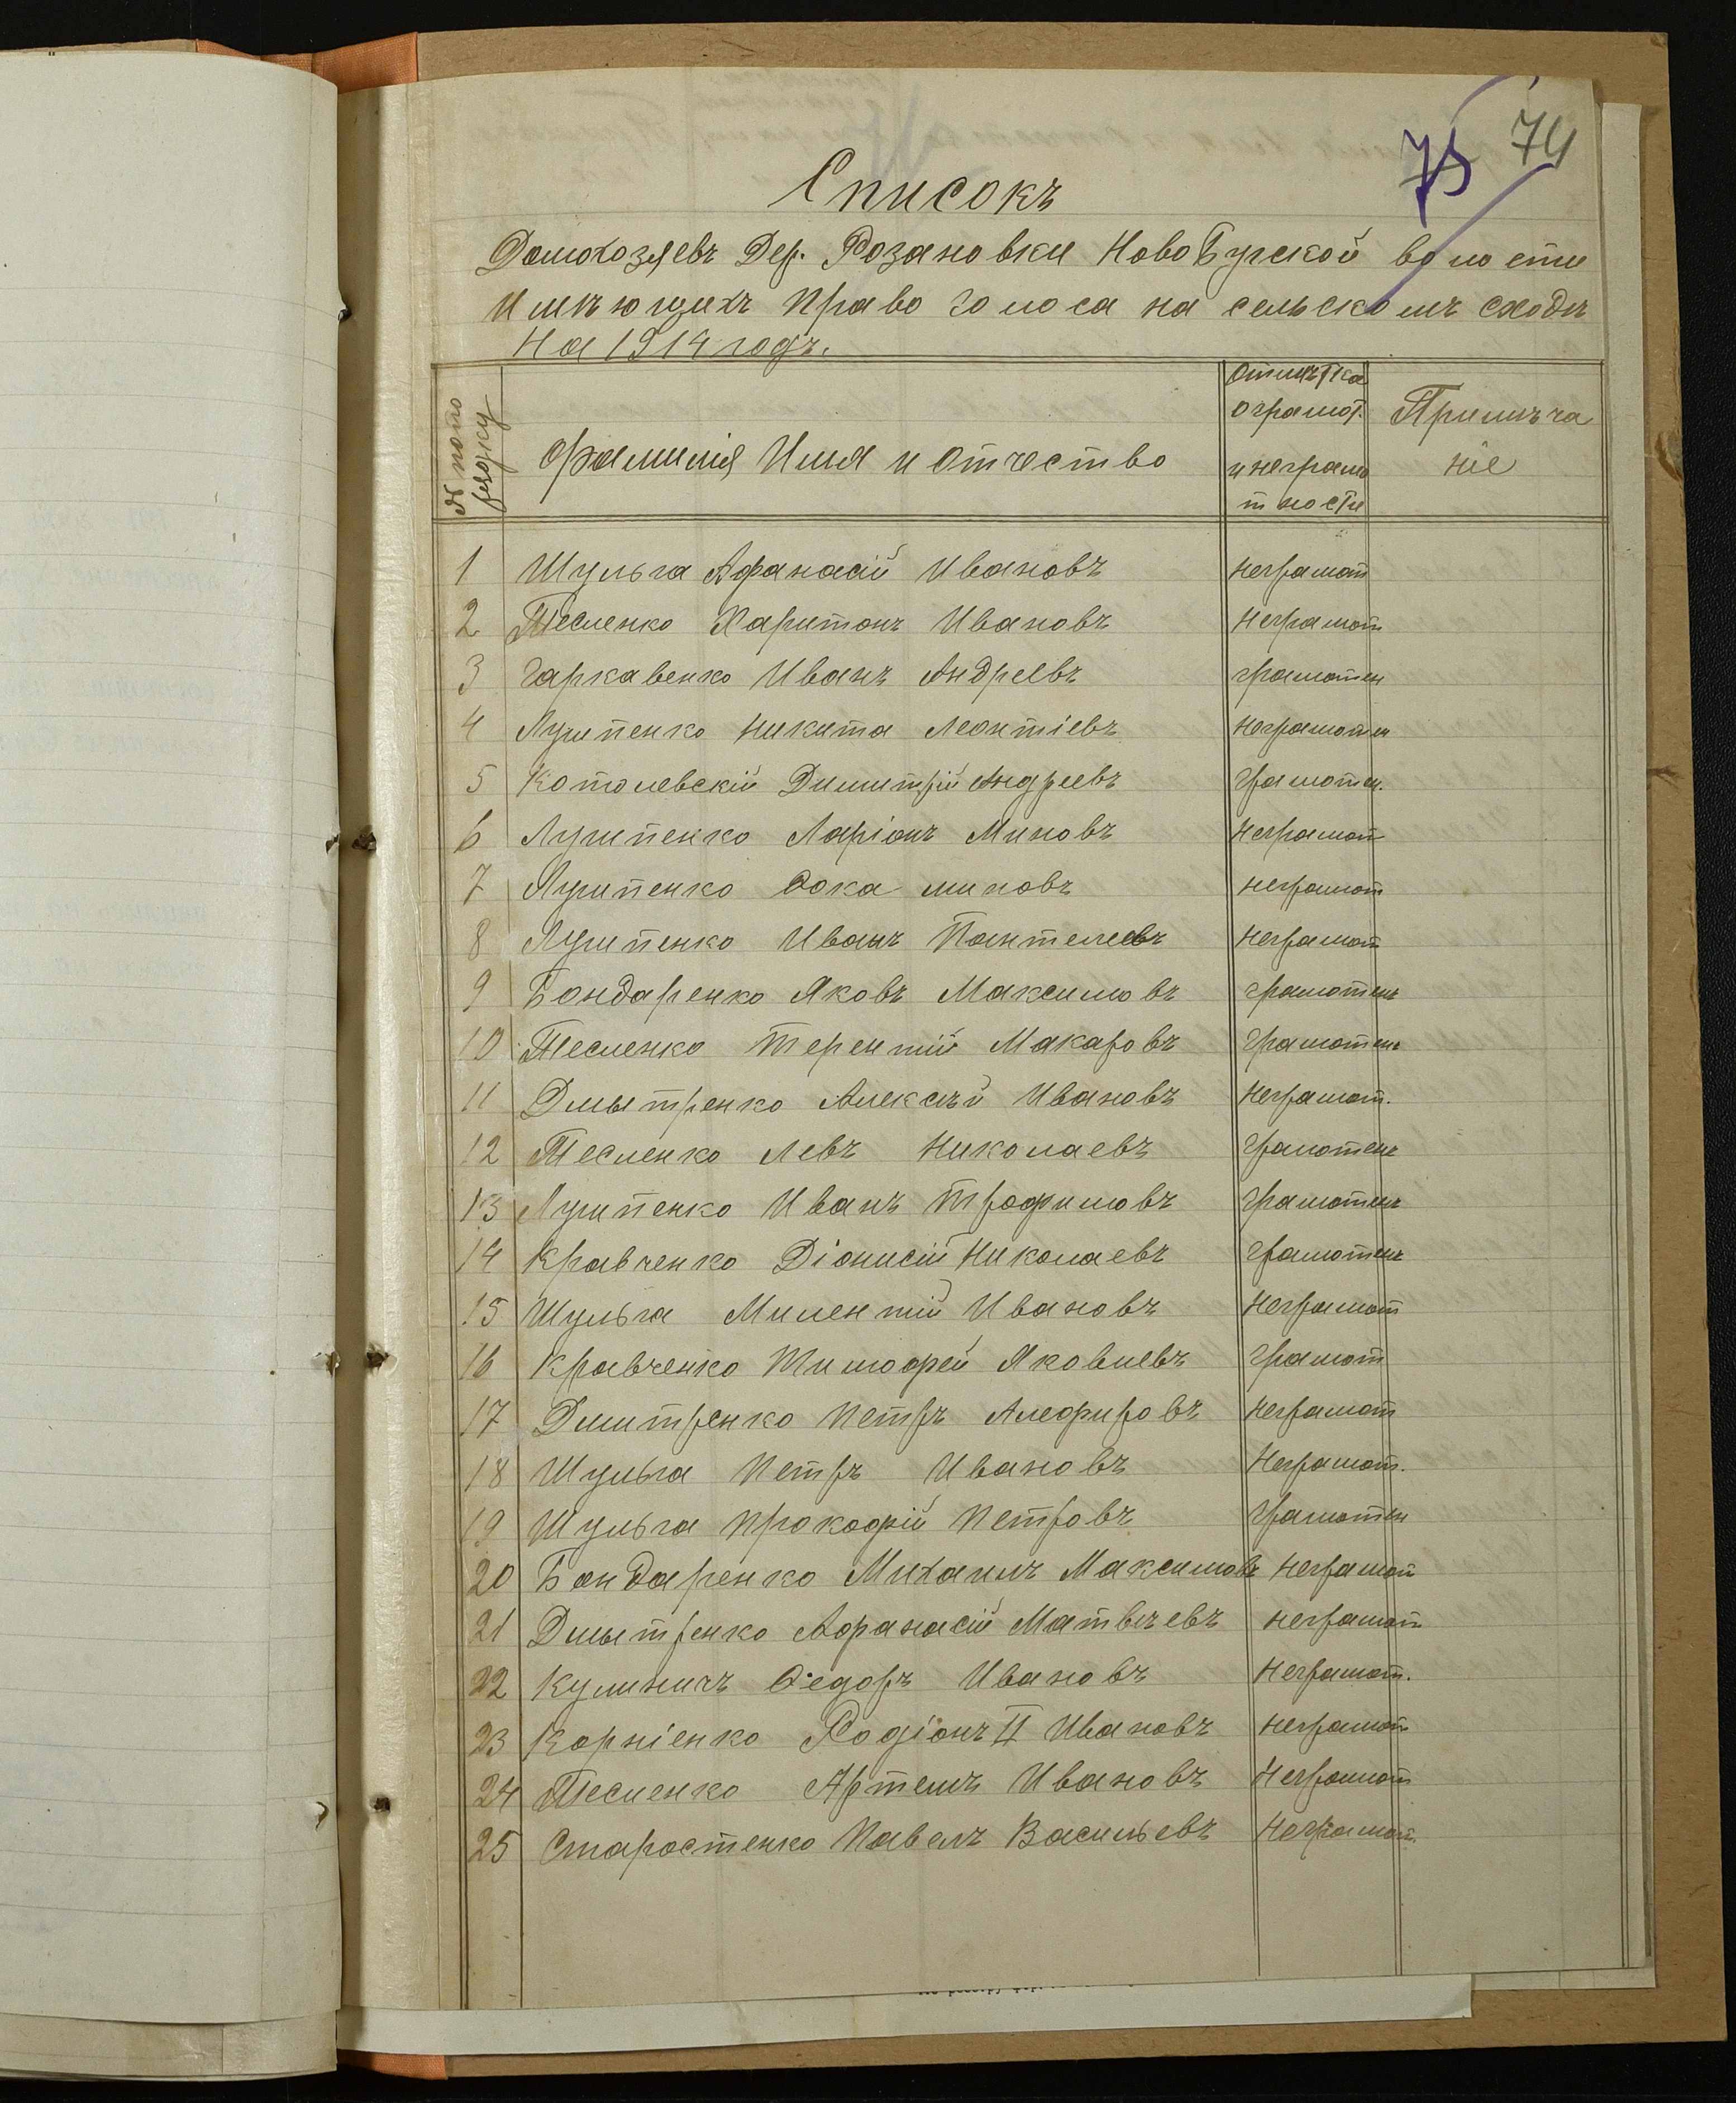 75 74
Списокъ
Домохозяевъ Дер. Розановки Ново Бугской волости
имѣющихъ право голоса на сельскомъ сходѣ
на 1914 годъ.
№ по по рядку | Фамилія Имя и Отчество | Отмѣтка о грамот. и неграмо тности | Примѣча ніе
1 Шульга Афанасій Ивановъ неграмот
2 Тесленко Харитонъ Ивановъ неграмот
3 Гаркавенко Иванъ Андреевъ грамотен
4 Лупенко Никита Леонтіевъ неграмотен
5 Котолевскій Димитрій Андреевъ грамотен.
6 Лупенко Ларіонъ Миновъ неграмот
7 Лупенко Ѳока миновъ неграмот
8 Лупенко Иванъ Пантелеевъ неграмот
9 Бондаренко Яковъ Максимовъ грамотенъ
10 Тесленко Терентій Макаровъ грамотенъ
11 Дмытренко Алексѣй Ивановъ неграмот.
12 Тесленко Левъ Николаевъ грамотенъ
13 Лупенко Иванъ Трофимовъ грамотенъ
14 Кравченко Діонисій Николаевъ грамотенъ
15 Шульга Милентій Ивановъ неграмот
16 Кравченко Тимофей Яковлевъ грамот
17 Дмитренко Петръ Алефировъ неграмот
18 Шульга Петръ Ивановъ неграмот.
19 Шульга Прокофій Петровъ грамотен
20 Бондаренко Михаилъ Максимовъ неграмот
21 Дмытренко Афанасій Матвѣевъ неграмот
22 Кулиничъ Ѳедоръ Ивановъ неграмот.
23 Корніенко Родіонъ II Ивановъ неграмот
24 Тесленко Артемъ Ивановъ неграмот
25 Старостенко Павелъ Васильевъ неграмот.